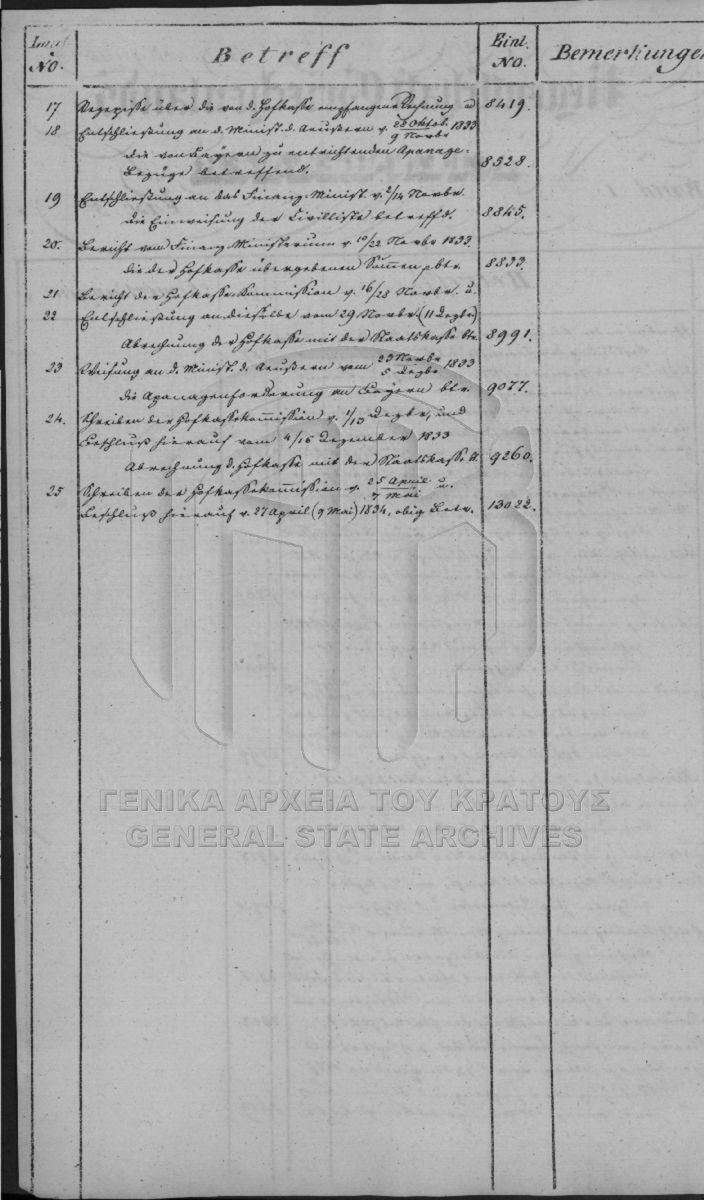 Betreff
Einl.
No.
No.
Bemerkungen
17 über die von d. Hofkasse empfangene Rechnung u 8419.
18 Entschließung an d. Minist. d. Aeußern v. 28 Oktob. / 9 Novbr 1833
die von Bayern zu entrichtenden Apanage-
Bezüge betreffend. 8528.
19 Entschließung an das Finanz-Minist. v. 2/14 Novbr.
die Einweisung der Civilliste betreffd. 8845.
20. Bericht vom Finanz Ministerium v. 10/22 Novbr 1833.
die der Hofkasse übergebenen Summen btr. 8833.
21 Bericht der Hofkasse Kommission v. 16/28 Novbr. u.
22 Entschließung an dieselbe vom 29 Novbr. (11 Dezbr)
Abrechnung der Hofkasse mit der Staatskasse btr. 8991.
23 Weisung an d. Minist. d. Aeußern vom 23 Novbr / 5 Dezbr 1833
die Apanagenforderung an Bayern btr. 9077.
24. Schreiben der Hofkassekommission v. 1/13 Dezbr, und
Beschluß hierauf vom 4/16 Dezember 1833
Abrechnung d. Hofkasse mit der Staatskasse bt. 9260.
25 Schreiben der Hofkassekommission v. 25 April / 7 Mai u.
Beschluß hierauf v. 27 April (9 Mai) 1834, obig Betr. 13022.
ΓΕΝΙΚΑ ΑΡΧΕΙΑ ΤΟΥ ΚΡΑΤΟΥΣ
GENERAL STATE ARCHIVES